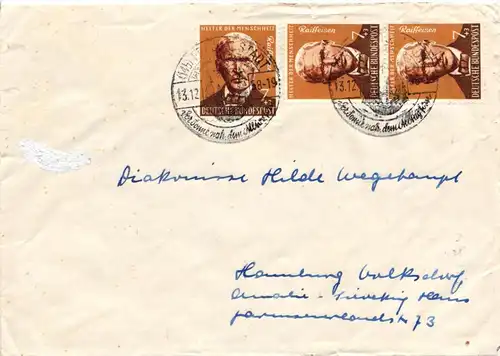 HELFER DER MENSCHHEIT
Raiffeisen
7+3
DEUTSCHE BUNDESPOST
HELFER DER MENSCHHEIT
Raiffeisen
7+3
DEUTSCHE BUNDESPOST
HELFER DER MENSCHHEIT
Raiffeisen
7+3
DEUTSCHE BUNDESPOST
13.12
13.12
nach dem
nach dem
Diakonisse Hilde Wegehaupt
Hamburg Volksdorf
Amalie-Sieveking Haus
Farmsenerlandstr 73